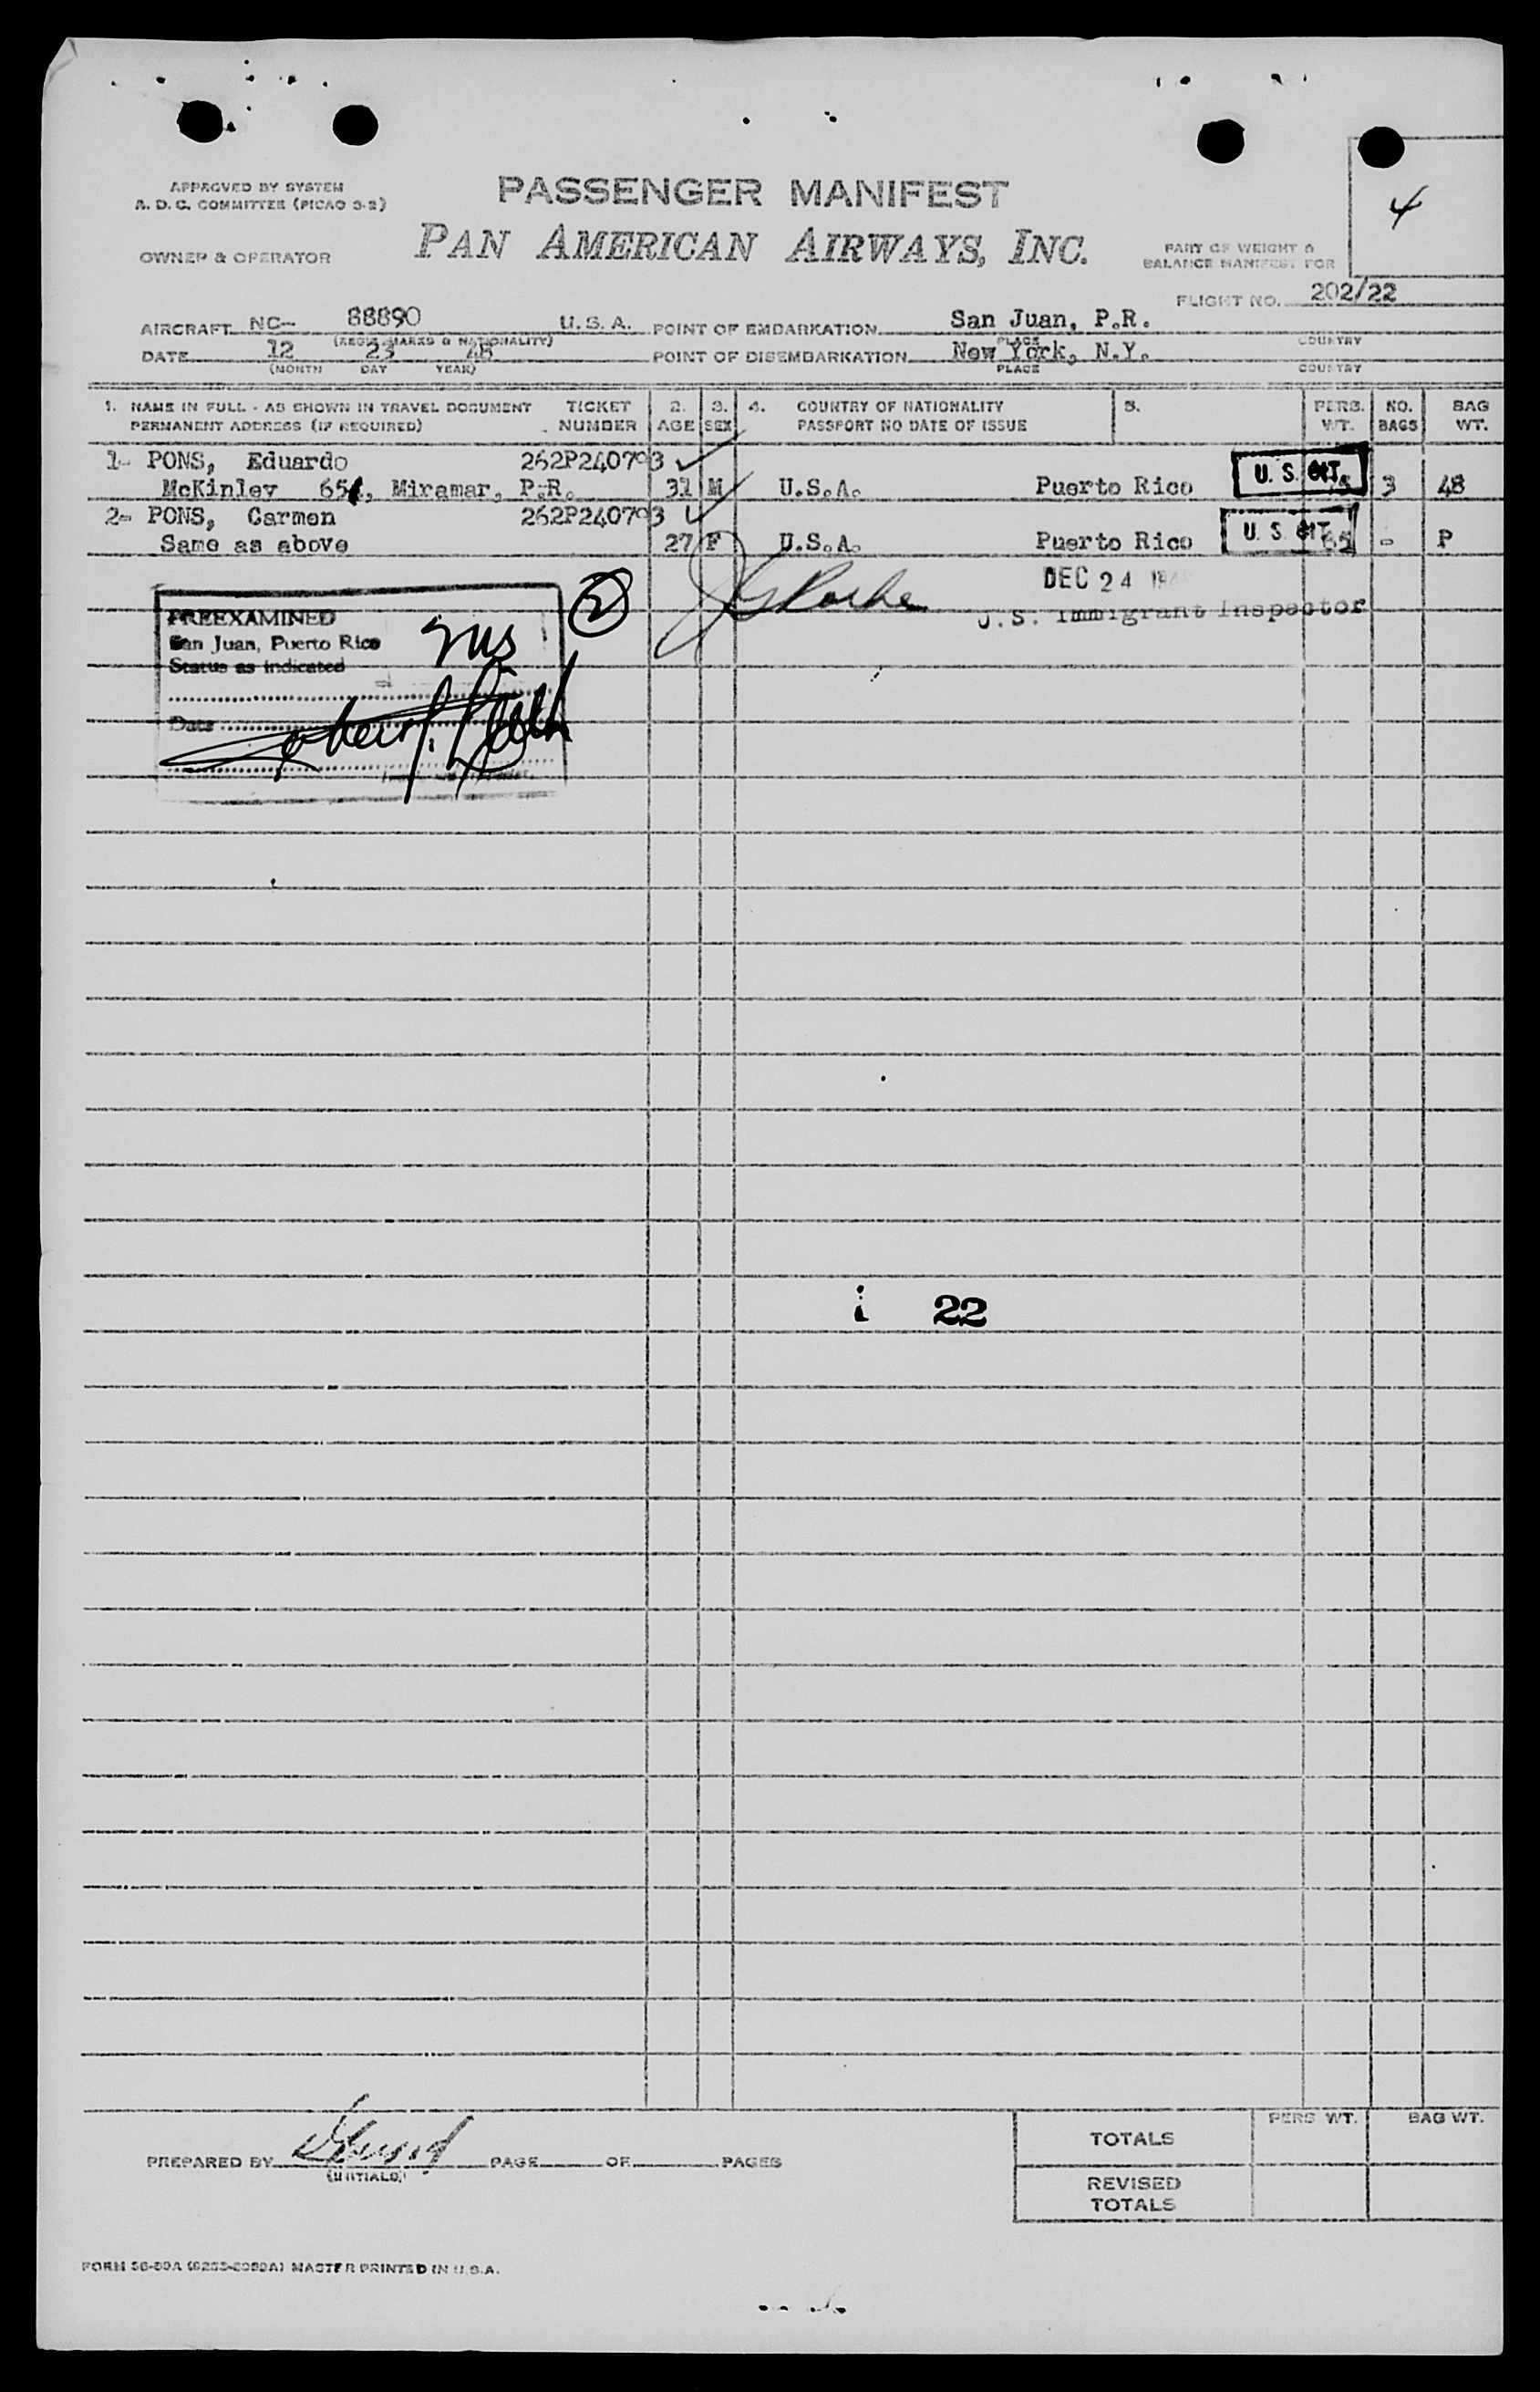 APPROVED BY SYSTEM
A. D. C. COMMITTEE (PICAO 3-2)
PASSENGER MANIFEST
4
OWNER & OPERATOR
PAN AMERICAN AIRWAYS, INC.
PART OF WEIGHT &
BALANCE MANIFEST FOR
FLIGHT NO. 202/22
AIRCRAFT NC- 88890 U.S.A. POINT OF EMBARKATION San Juan, P.R.
(REGIS. MARKS & NATIONALITY) PLACE COUNTRY
DATE 12 23 48 POINT OF DISEMBARKATION New York, N.Y.
(MONTH DAY YEAR) PLACE COUNTRY
1. NAME IN FULL - AS SHOWN IN TRAVEL DOCUMENT TICKET 2. 3. 4. COUNTRY OF NATIONALITY 5. PERS. NO. BAG
PERMANENT ADDRESS (IF REQUIRED) NUMBER AGE SEX PASSPORT NO DATE OF ISSUE WT. BAGS WT.
1- PONS, Eduardo 262P240793
McKinley 654, Miramar, P.R. 31 M U.S.A. Puerto Rico U. S. CIT. 3 48
2- PONS, Carmen 262P240793
Same as above 27 F U.S.A. Puerto Rico U. S. CIT. - P
DEC 24
U.S. Immigrant Inspector
2
PREEXAMINED
San Juan, Puerto Rico
Status as indicated
Date
i 22
PREPARED BY PAGE OF PAGES
(INITIALS)
PERS WT. BAG WT.
TOTALS
REVISED
TOTALS
MASTER PRINTED IN U.S.A.